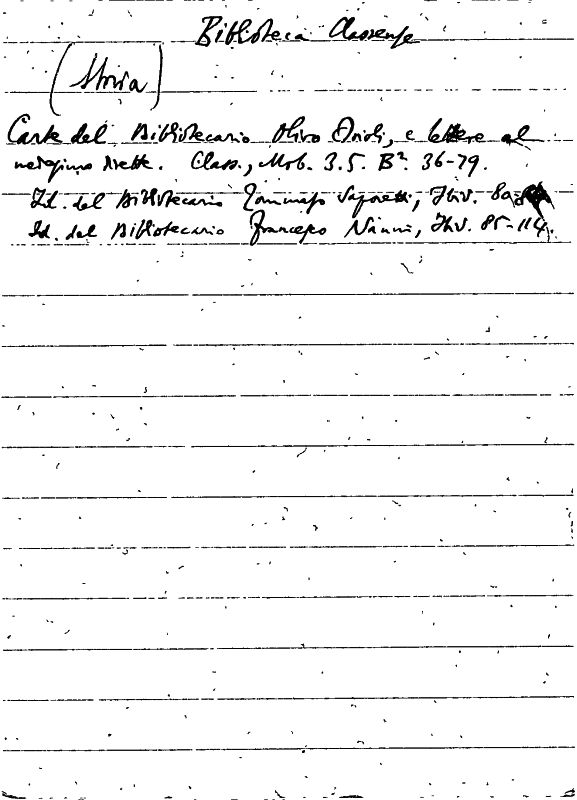 Biblioteca Classense
(Storia)
Carte del Bibliotecario Olivo Orioli, e lettere al
medesimo dirette. Class., Mob. 3.5. B². 36-79.
Id. del Bibliotecario Tommaso Saporetti, Ibid. 80
Id. del Bibliotecario Francesco Nanni, Ibid. 85-114.